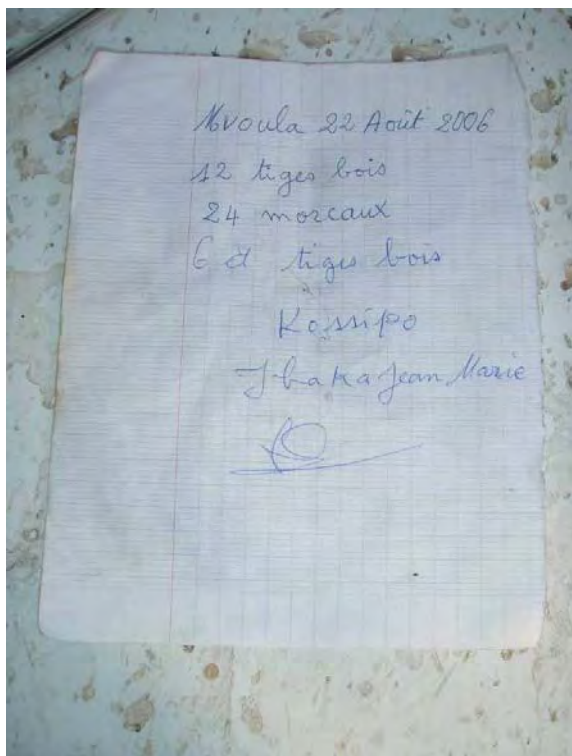 Mvoula 22 Août 2006
12 tiges bois
24 morcaux
6 et tiges bois
Kossipo
Ibaka Jean Marie